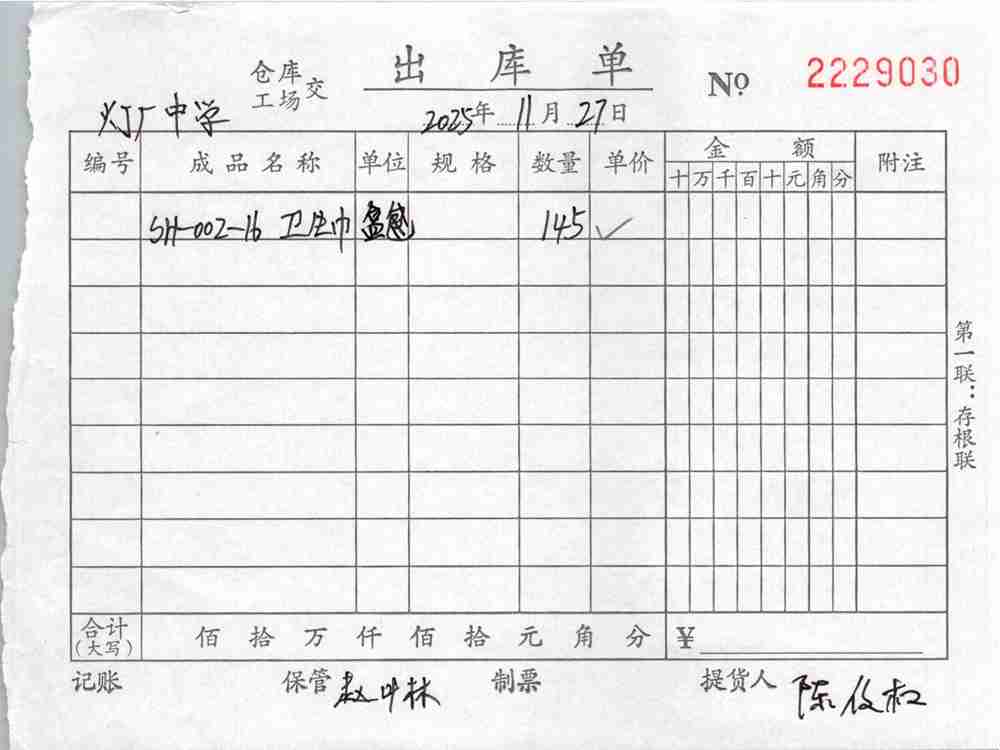 出库单
仓库
工场交
№ 2229030
灯厂中学
2025年11月27日
编号 成品名称 单位 规格 数量 单价 金额 附注
十万千百十元角分
SH-002-16 卫生巾 145 ✓
第一联：存根联
合计
(大写) 佰拾万仟佰拾元角分 ¥
记账 保管 赵叶林 制票 提货人 陈